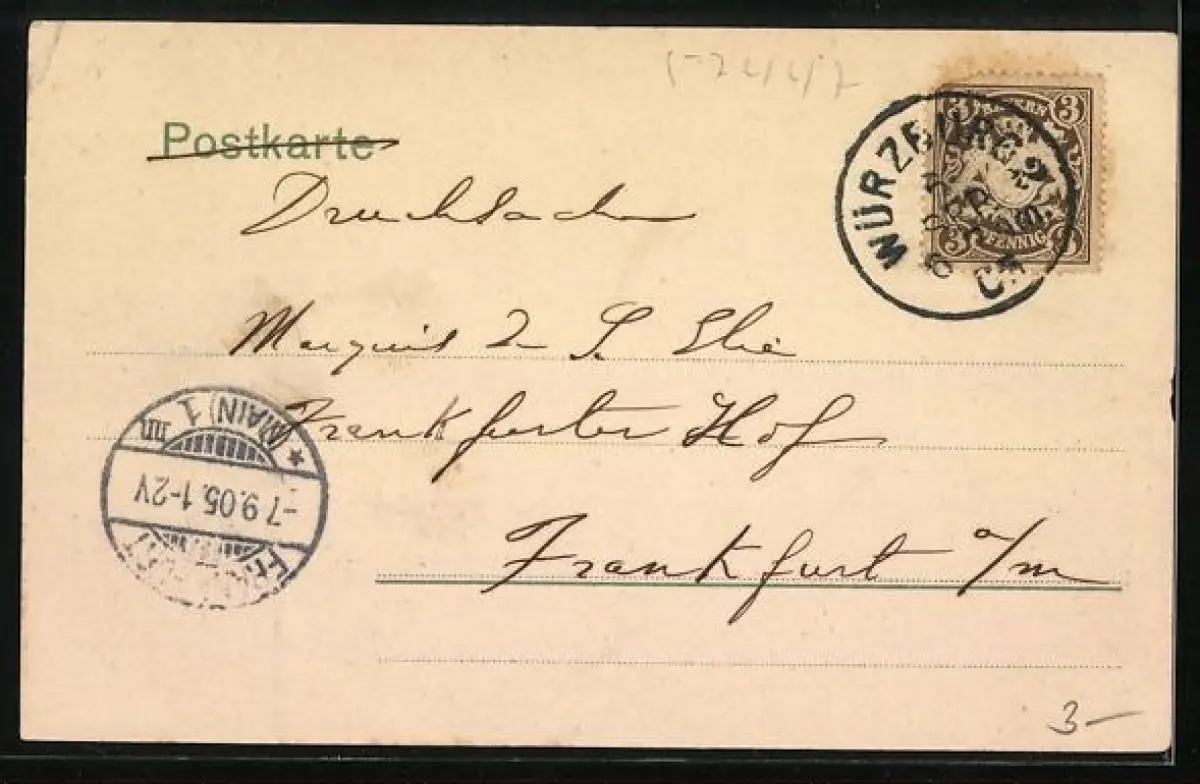 Postkarte
Drucksache
BAYERN
3 3
3 PFENNIG 3
WÜRZBURG 2
Marquis de S. Elie
Frankfurter Hof
Frankfurt a/m
(MAIN) 1 * nn
-7.9.05.1-2V
3-